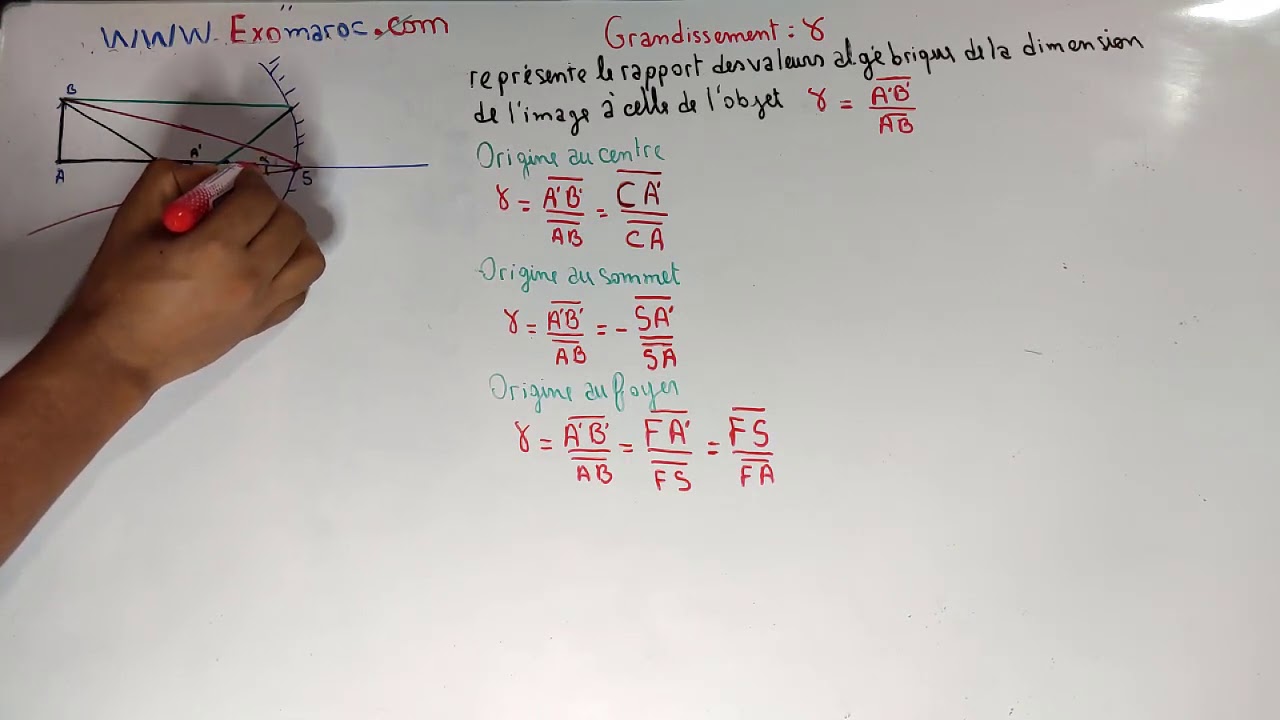 WWW. Exomaroc.com
Grandissement : γ
représente le rapport des valeurs algébrique de la dimension
de l'image à celle de l'objet γ = A'B' / AB
Origine au centre
γ = A'B' / AB = CA' / CA
Origine au sommet
γ = A'B' / AB = - SA' / SA
Origine au foyer
γ = A'B' / AB = FA' / FS = FS / FA
B
A'
A
S